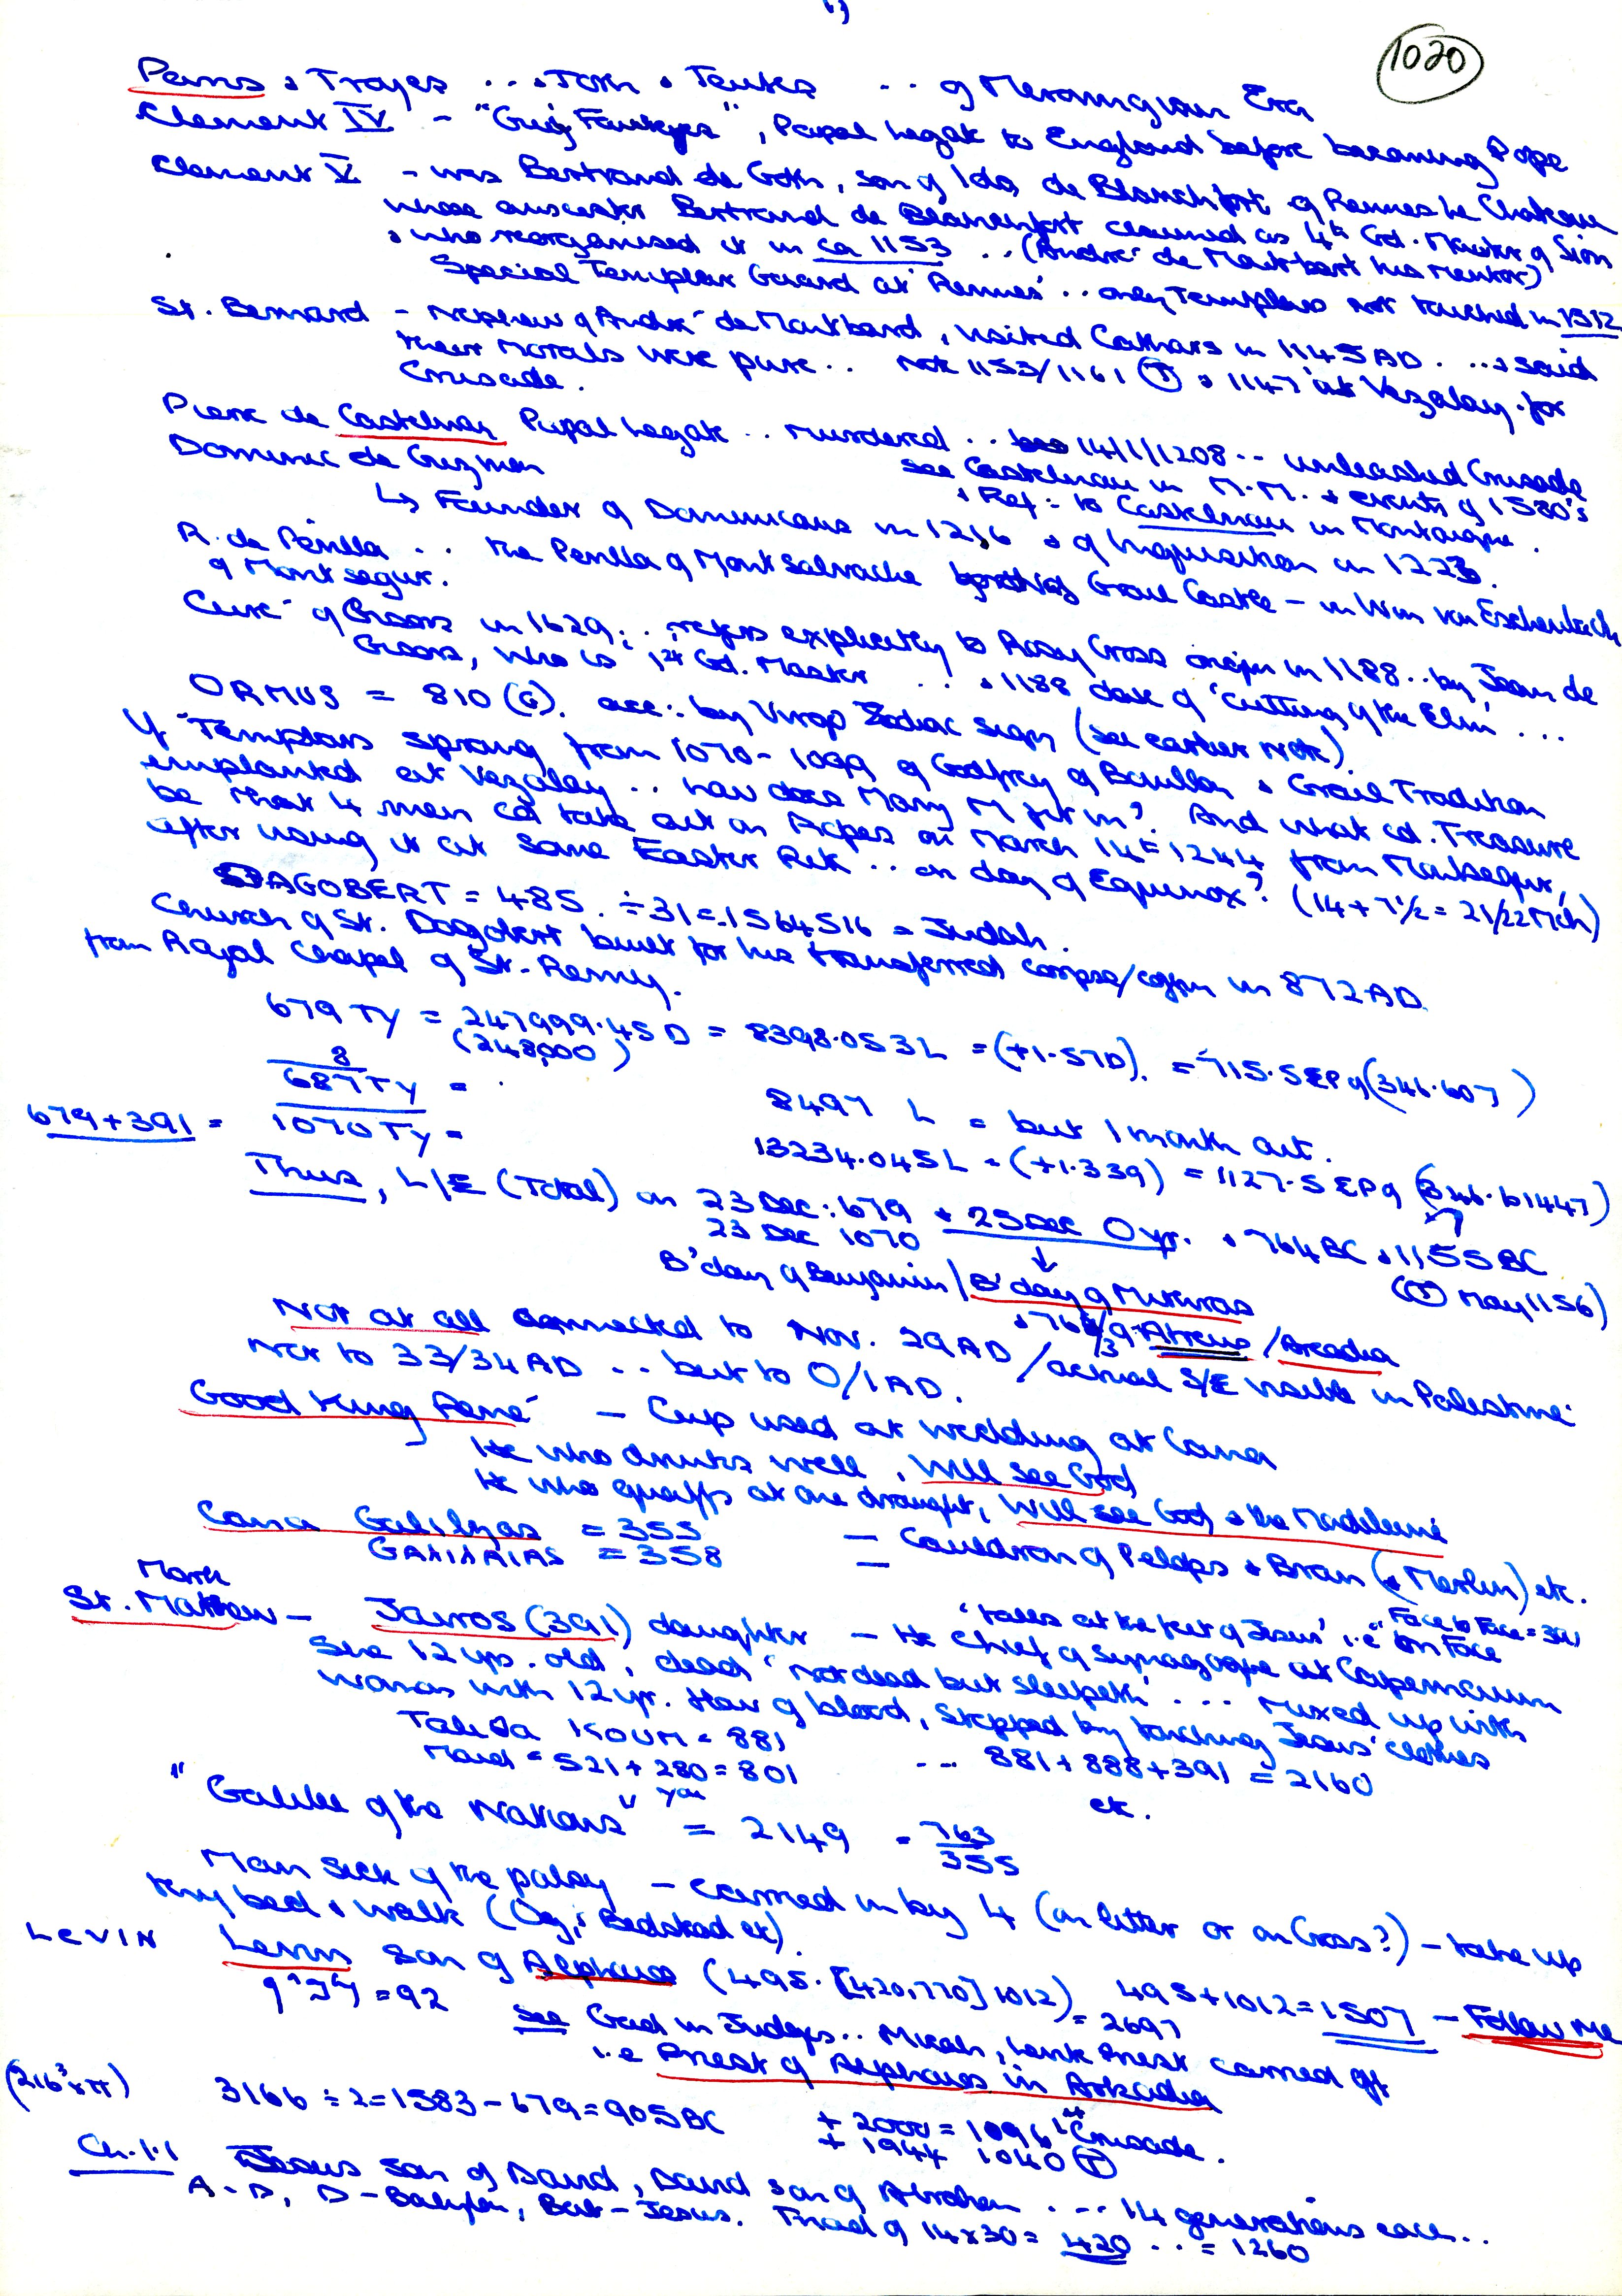 1)
1020
Perns & Troyes ... & Jork & Teutes ... of Merovingian Era
Clement IV - "Guy Faulkes", Papal Legate to England before becoming Pope
Clement V - was Bertrand de Goth, son of Ida de Blanchfort of Rennes le Chateau
whose ancestor Bertrand de Blanchfort claimed as 4th Gd. Master of Sion
& who reorganised it in ca 1153 .. (André de Montbard his Mentor)
Special Templar Guard at 'Rennes' .. only Templars not touched in 1312
St. Bernard - Nephew of André de Montbard, visited Cathars in 1145 AD ... & said
their morals were pure .. Note 1153/1161 (T) & 1147 at Vezalay for
Crusade.
Pierre de Castelnau Papal Legate .. murdered .. 14/1/1208 .. unleashed Crusade
see Castelnau in M.M. & events of 1580's
Dominic de Guzman
& Ref: to Castelnau in Montaigne.
↳ Founder of Dominicans in 1216 & of Inquisition in 1223.
R. de Perilla .. the Perilla of Mont Salvache Grail Castle - in Wm von Eschenbach
of Montsegur.
Curé of Gisors in 1629 .. refers explicitly to Rosy Cross origin in 1188 .. by Jean de
Gisors, who is 1st Gd. Master .. & 1188 date of 'Cutting of the Elm' ...
ORMUS = 810 (G). acc: by Virgo Zodiac sign (see earlier note)
If Templars sprang from 1070-1099 of Godfrey of Bouillon & Grail Tradition
implanted at Vezalay .. how does Mary M fit in? And what cd. Treasure
be that 4 men cd take out on Ropes on March 14th 1244 from Montsegur,
after using it at some Easter Rite .. on day of Equinox? (14 + 7½ = 21/22 Mch)
DAGOBERT = 485. ÷ 31 = .1564516 = Judah.
Church of St. Dagobert built for his transferred corpse/coffin in 872 AD
from Royal Chapel of St. Remy.
679 TY = 247999.45 D = 8398.053 L = (+1.57D). = 715.5 EP of (346.607)
(248,000)
8
687 TY =
8497 L = but 1 month out.
679 + 391 = 1070 TY =
13234.045 L = (+1.339) = 1127.5 EP of (346.61447)
Thus, L/E (Total) on 23 Dec: 679 & 25 Dec 0 yr. & 764 BC & 1155 BC
23 Dec 1070
(T) May 1156)
B'day of Benjamin / B'day of Mithras
& 764/3/9 Atreus / Arcadia
Not at all connected to Nov. 29 AD / actual S/E visible in Palestine
Nor to 33/34 AD .. but to 0/1 AD.
Good King René - Cup used at Wedding at Cana
He who drinks well, will see God
He who quaffs at one draught, will see God & the Madeleine
Cana Galilyas = 355 - Cauldron of Pelops & Bran (& Merlin) etc.
GAΛIΛAIAS = 358 -
Mark
St. Mathew - Jairos (391) daughter - He 'falls at the feet of Jesus' i.e "on Face
Face to Face = 391
Chief of synagogue at Capernaum
She 12 yrs. old, dead 'Not dead but sleepeth' ... Mixed up with
woman with 12 yr. flow of blood, stopped by touching Jesus' clothes
Talitha KOUM = 881 ... 881 + 888 + 391 = 2160
Maid = 521 + 280 = 801 etc.
you
"Galilee of the Nations" = 2149 = 763
355
Man sick of the palsy - carried in by 4 (on litter or on Cross?) - take up
thy bed & walk (Og, & Bedstead etc).
LEVIN Levin son of Alpheus (495. [420,770] 1012) 495 + 1012 = 1507 - Follow me
= 92 = 2697
see Gad in Judges .. Micah, Levite Priest carried off
i.e Priest of Alpheus in Arkadia
(216³ x π) 3166 ÷ 2 = 1583 - 679 = 905 BC + 2000 = 1096 1st Crusade.
+ 1944 1040 (T)
Ch. 1.1 Jesus son of David, David son of Abraham ... 14 generations each ..
A - D, D - Babylon, Bab - Jesus. Triad of 14 x 30 = 420 .. = 1260